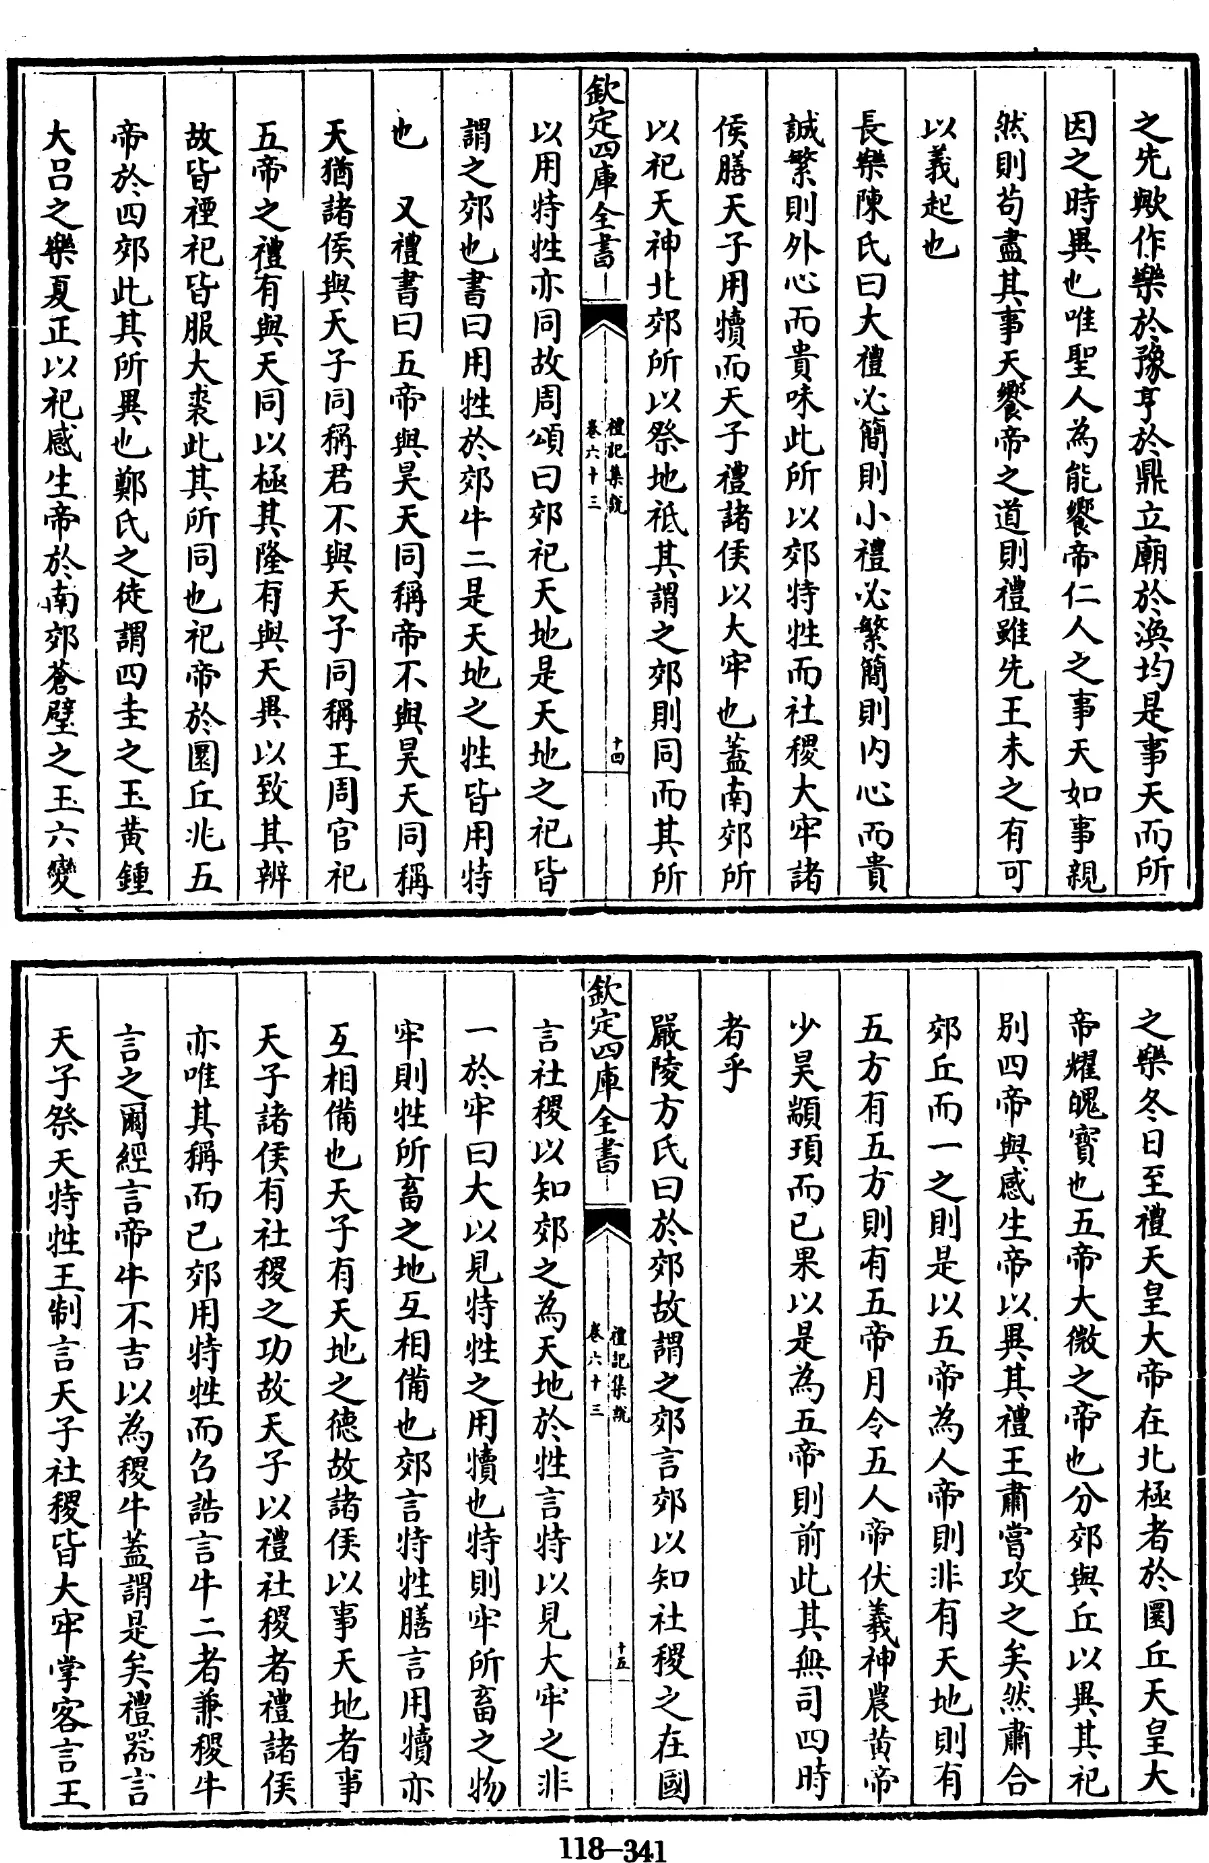 之先歟作樂於豫亨於鼎立廟於渙均是事天而所
因之時異也唯聖人為能饗帝仁人之事天如事親
然則苟盡其事天饗帝之道則禮雖先王未之有可
以義起也
長樂陳氏曰大禮必簡則小禮必繁簡則内心而貴
誠繁則外心而貴味此所以郊特牲而社稷大牢諸
侯膳天子用犢而天子禮諸侯以大牢也蓋南郊所
以祀天神北郊所以祭地祗其謂之郊則同而其所
欽定四庫全書
禮記集說
卷六十三
十四
以用特牲亦同故周頌曰郊祀天地是天地之祀皆
謂之郊也書曰用牲於郊牛二是天地之牲皆用特
也 又禮書曰五帝與昊天同稱帝不與昊天同稱
天猶諸侯與天子同稱君不與天子同稱王周官祀
五帝之禮有與天同以極其隆有與天異以致其辨
故皆禋祀皆服大裘此其所同也祀帝於圜丘兆五
帝於四郊此其所異也鄭氏之徒謂四圭之玉黄鍾
大吕之樂夏正以祀感生帝於南郊蒼璧之玉六變
之樂冬日至禮天皇大帝在北極者於圜丘天皇大
帝耀魄寶也五帝大微之帝也分郊與丘以異其祀
別四帝與感生帝以異其禮王肅嘗攻之矣然肅合
郊丘而一之則是以五帝為人帝則非有天地則有
五方有五方則有五帝月令五人帝伏羲神農黄帝
少昊顓頊而已果以是為五帝則前此其無司四時
者乎
嚴陵方氏曰於郊故謂之郊言郊以知社稷之在國
欽定四庫全書
禮記集說
卷六十三
十五
言社稷以知郊之為天地於牲言特以見大牢之非
一於牢曰大以見特牲之用犢也特則牢所畜之物
牢則牲所畜之地互相備也郊言特牲膳言用犢亦
互相備也天子有天地之德故諸侯以事天地者事
天子諸侯有社稷之功故天子以禮社稷者禮諸侯
亦唯其稱而已郊用特牲而召誥言牛二者兼稷牛
言之爾經言帝牛不吉以為稷牛蓋謂是矣禮器言
天子祭天特牲王制言天子社稷皆大牢掌客言王
118-341